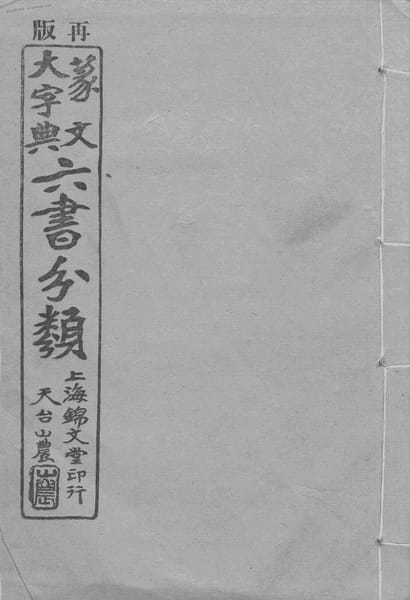 再版
篆文
大字典
六書分類
上海錦文堂印行
天台山農